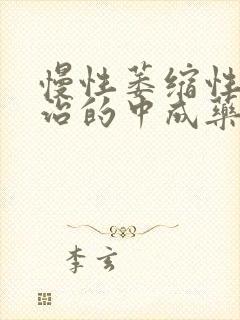 慢性萎缩性
治的中成药
李玄